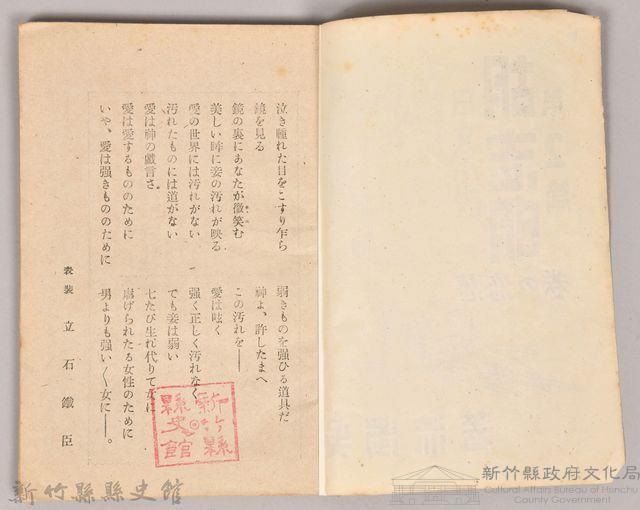 泣き腫れた目をこすり乍ら
鏡を見る
鏡の裏にあなたが微笑む
美しい眸に妾の汚れが映る
愛の世界には汚れがない
汚れたものには道がない
愛は神の戯言さ
愛は愛するもののために
いや、愛は强きもののために
弱きものを强ひる道具だ
神よ、許したまへ
この汚れを――
愛は呟く
强く正しく汚れなく
でも妾は弱い
七たび生れ代りて女に
虐げられたる女性のために
男よりも强い〱女に――。
表装 立石鐵臣
新竹縣
縣史館
新竹縣縣史館
新竹縣政府文化局
Cultural Affairs Bureau of Hsinchu
County Government